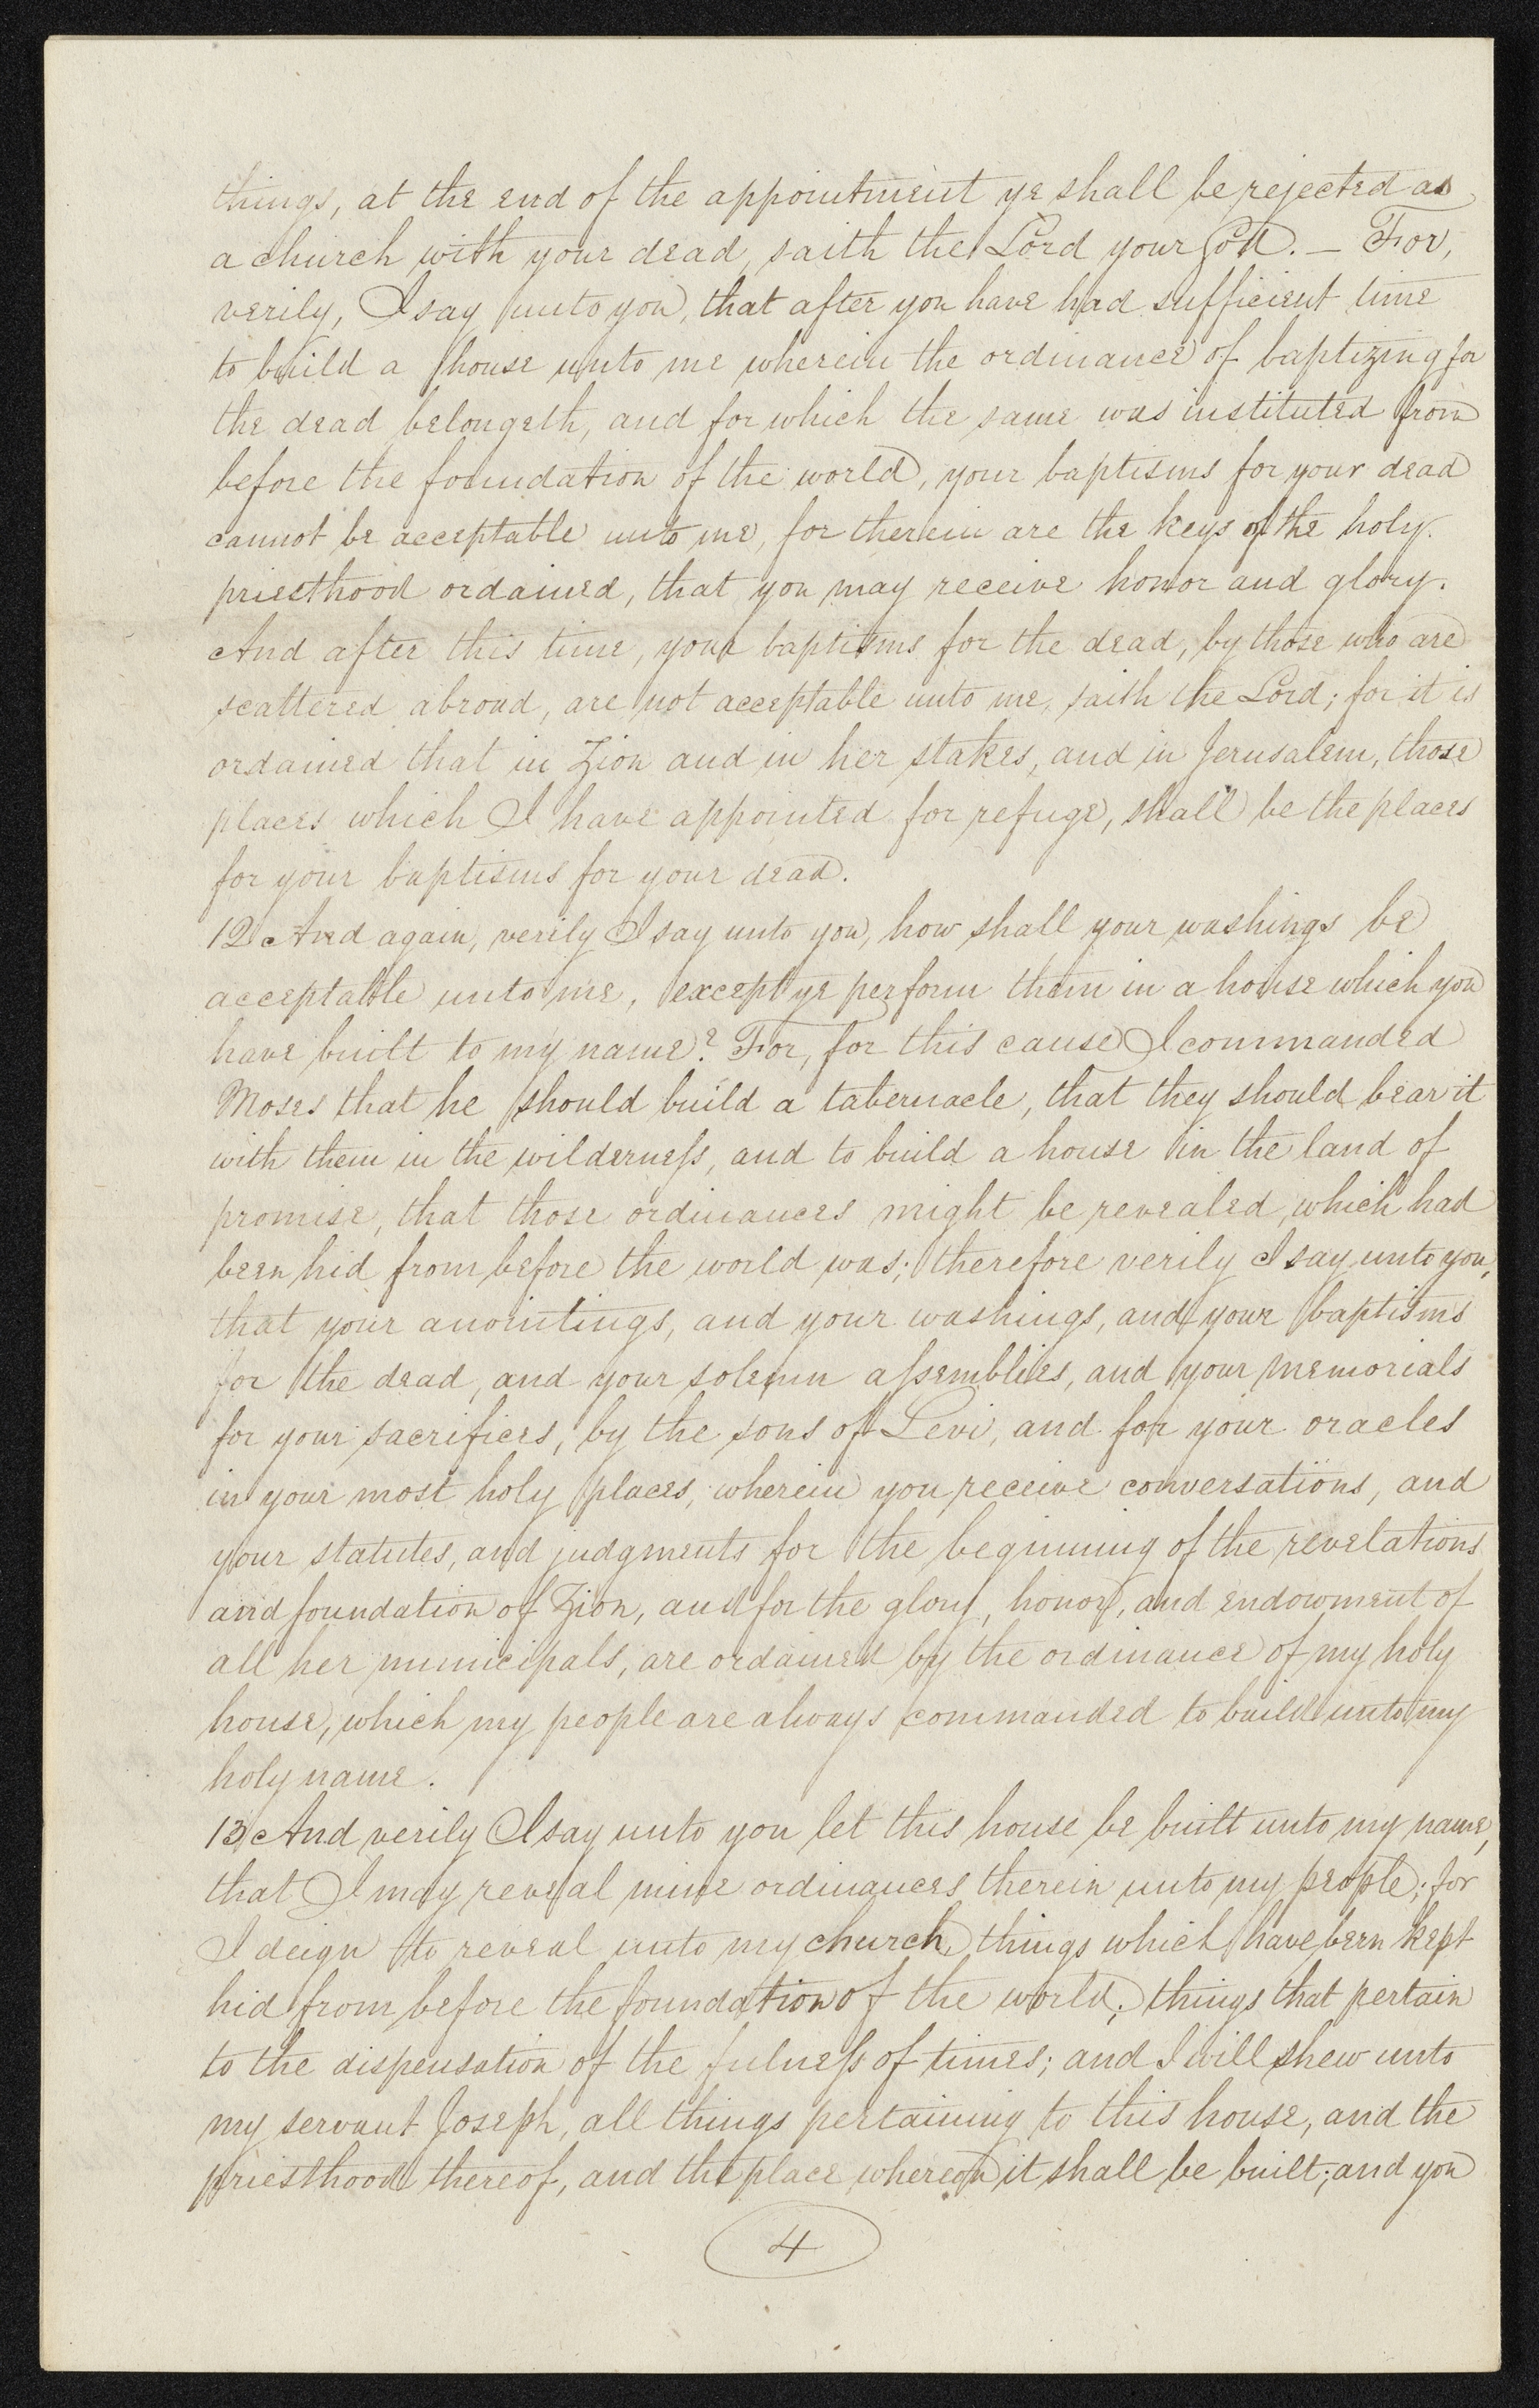 things, at the end of the appointment ye shall be rejected as
a church with your dead, saith the Lord your God. — For,
verily, I say unto you, that after you have had sufficient time
to build a house unto me wherein the ordinance of baptizing for
the dead belongeth, and for which the same was instituted from
before the foundation of the world, your baptisms for your dead
cannot be acceptable unto me, for therein are the keys of the holy
priesthood ordained, that you may receive honor and glory.
And after this time, your baptisms for the dead, by those who are
scattered abroad, are not acceptable unto me, saith the Lord; for it is
ordained that in Zion and in her stakes, and in Jerusalem, those
places which I have appointed for refuge, shall be the places
for your baptisms for your dead.
12 And again, verily I say unto you, how shall your washings be
acceptable unto me, except ye perform them in a house which you
have built to my name? For, for this cause I commanded
Moses that he should build a tabernacle, that they should bear it
with them in the wilderneſs, and to build a house in the land of
promise, that those ordinances might be revealed, which had
been hid from before the world was; therefore verily I say unto you,
that your anointings, and your washings, and your baptisms
for the dead, and your solemn aſsemblies, and your memorials
for your sacrifices, by the sons of Levi, and for your oracles
in your most holy places, wherein you receive conversations, and
your statutes, and judgments for the beginning of the revelations
and foundation of Zion, and for the glory, honor, and endowment of
all her municipals, are ordained by the ordinance of my holy
house, which my people are always commanded to build unto my
holy name.
13 And verily I say unto you let this house be built unto my name,
that I may reveal mine ordinances therein unto my people; for
I deign to reveal unto my church, things which have been kept
hid from before the foundation of the world; things that pertain
to the dispensation of the fulneſs of times; and I will shew unto
my servant Joseph, all things pertaining to this house, and the
priesthood thereof, and the place whereon it shall be built; and you
4